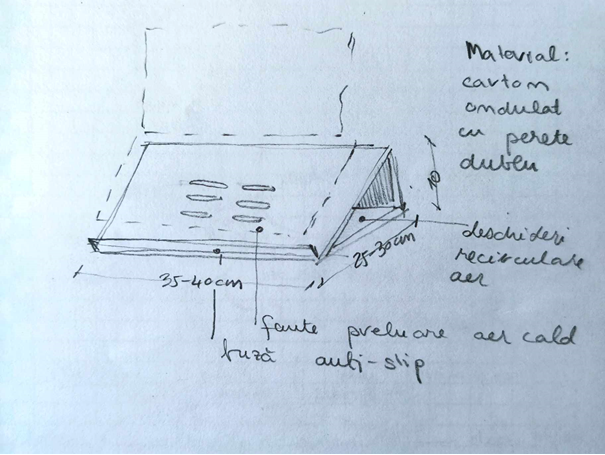 Material:
carton
ondulat
cu perete
dublu
10
deschideri
recirculare
aer
25-30cm
35-40cm
fante preluare aer cald
buză anti-slip